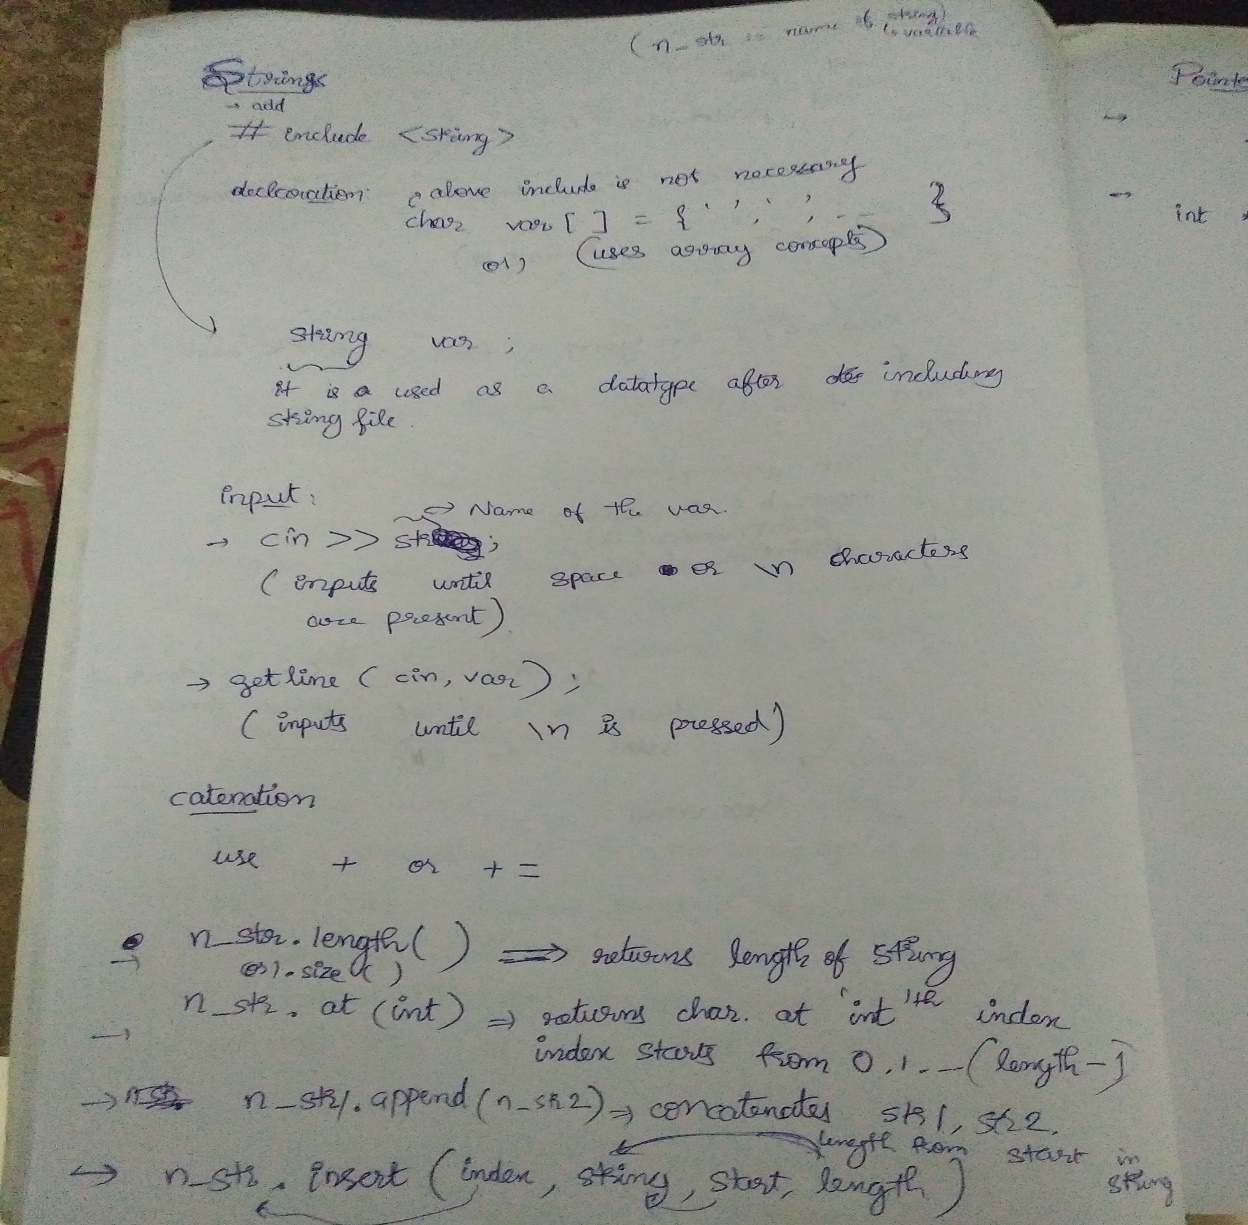 (n_str is name of string)
↳ variable
Strings
→ add
# include <string>
declaration: ; above include is not necessary
char var [ ] = { ' ', ' ', ... }
or, (uses array concepts)
string var ;
it is a used as a datatype after including
string file.
input:
→ Name of the var.
→ cin >> st ;
( inputs until space or \n characters
are present)
→ getline ( cin, var ) ;
( inputs until \n is pressed)
catenation
use + or + =
→ n_str. length( ) ⇒ returns length of string
or). size( )
→ n_str. at (int) ⇒ returns char. at 'int'th index
index starts from 0,1...(length-1
→ n_str1. append (n_str2) → concatenates str1, str2.
length from start in
string
→ n_str. insert (index, string, start, length)
Pointe
→
→ int *